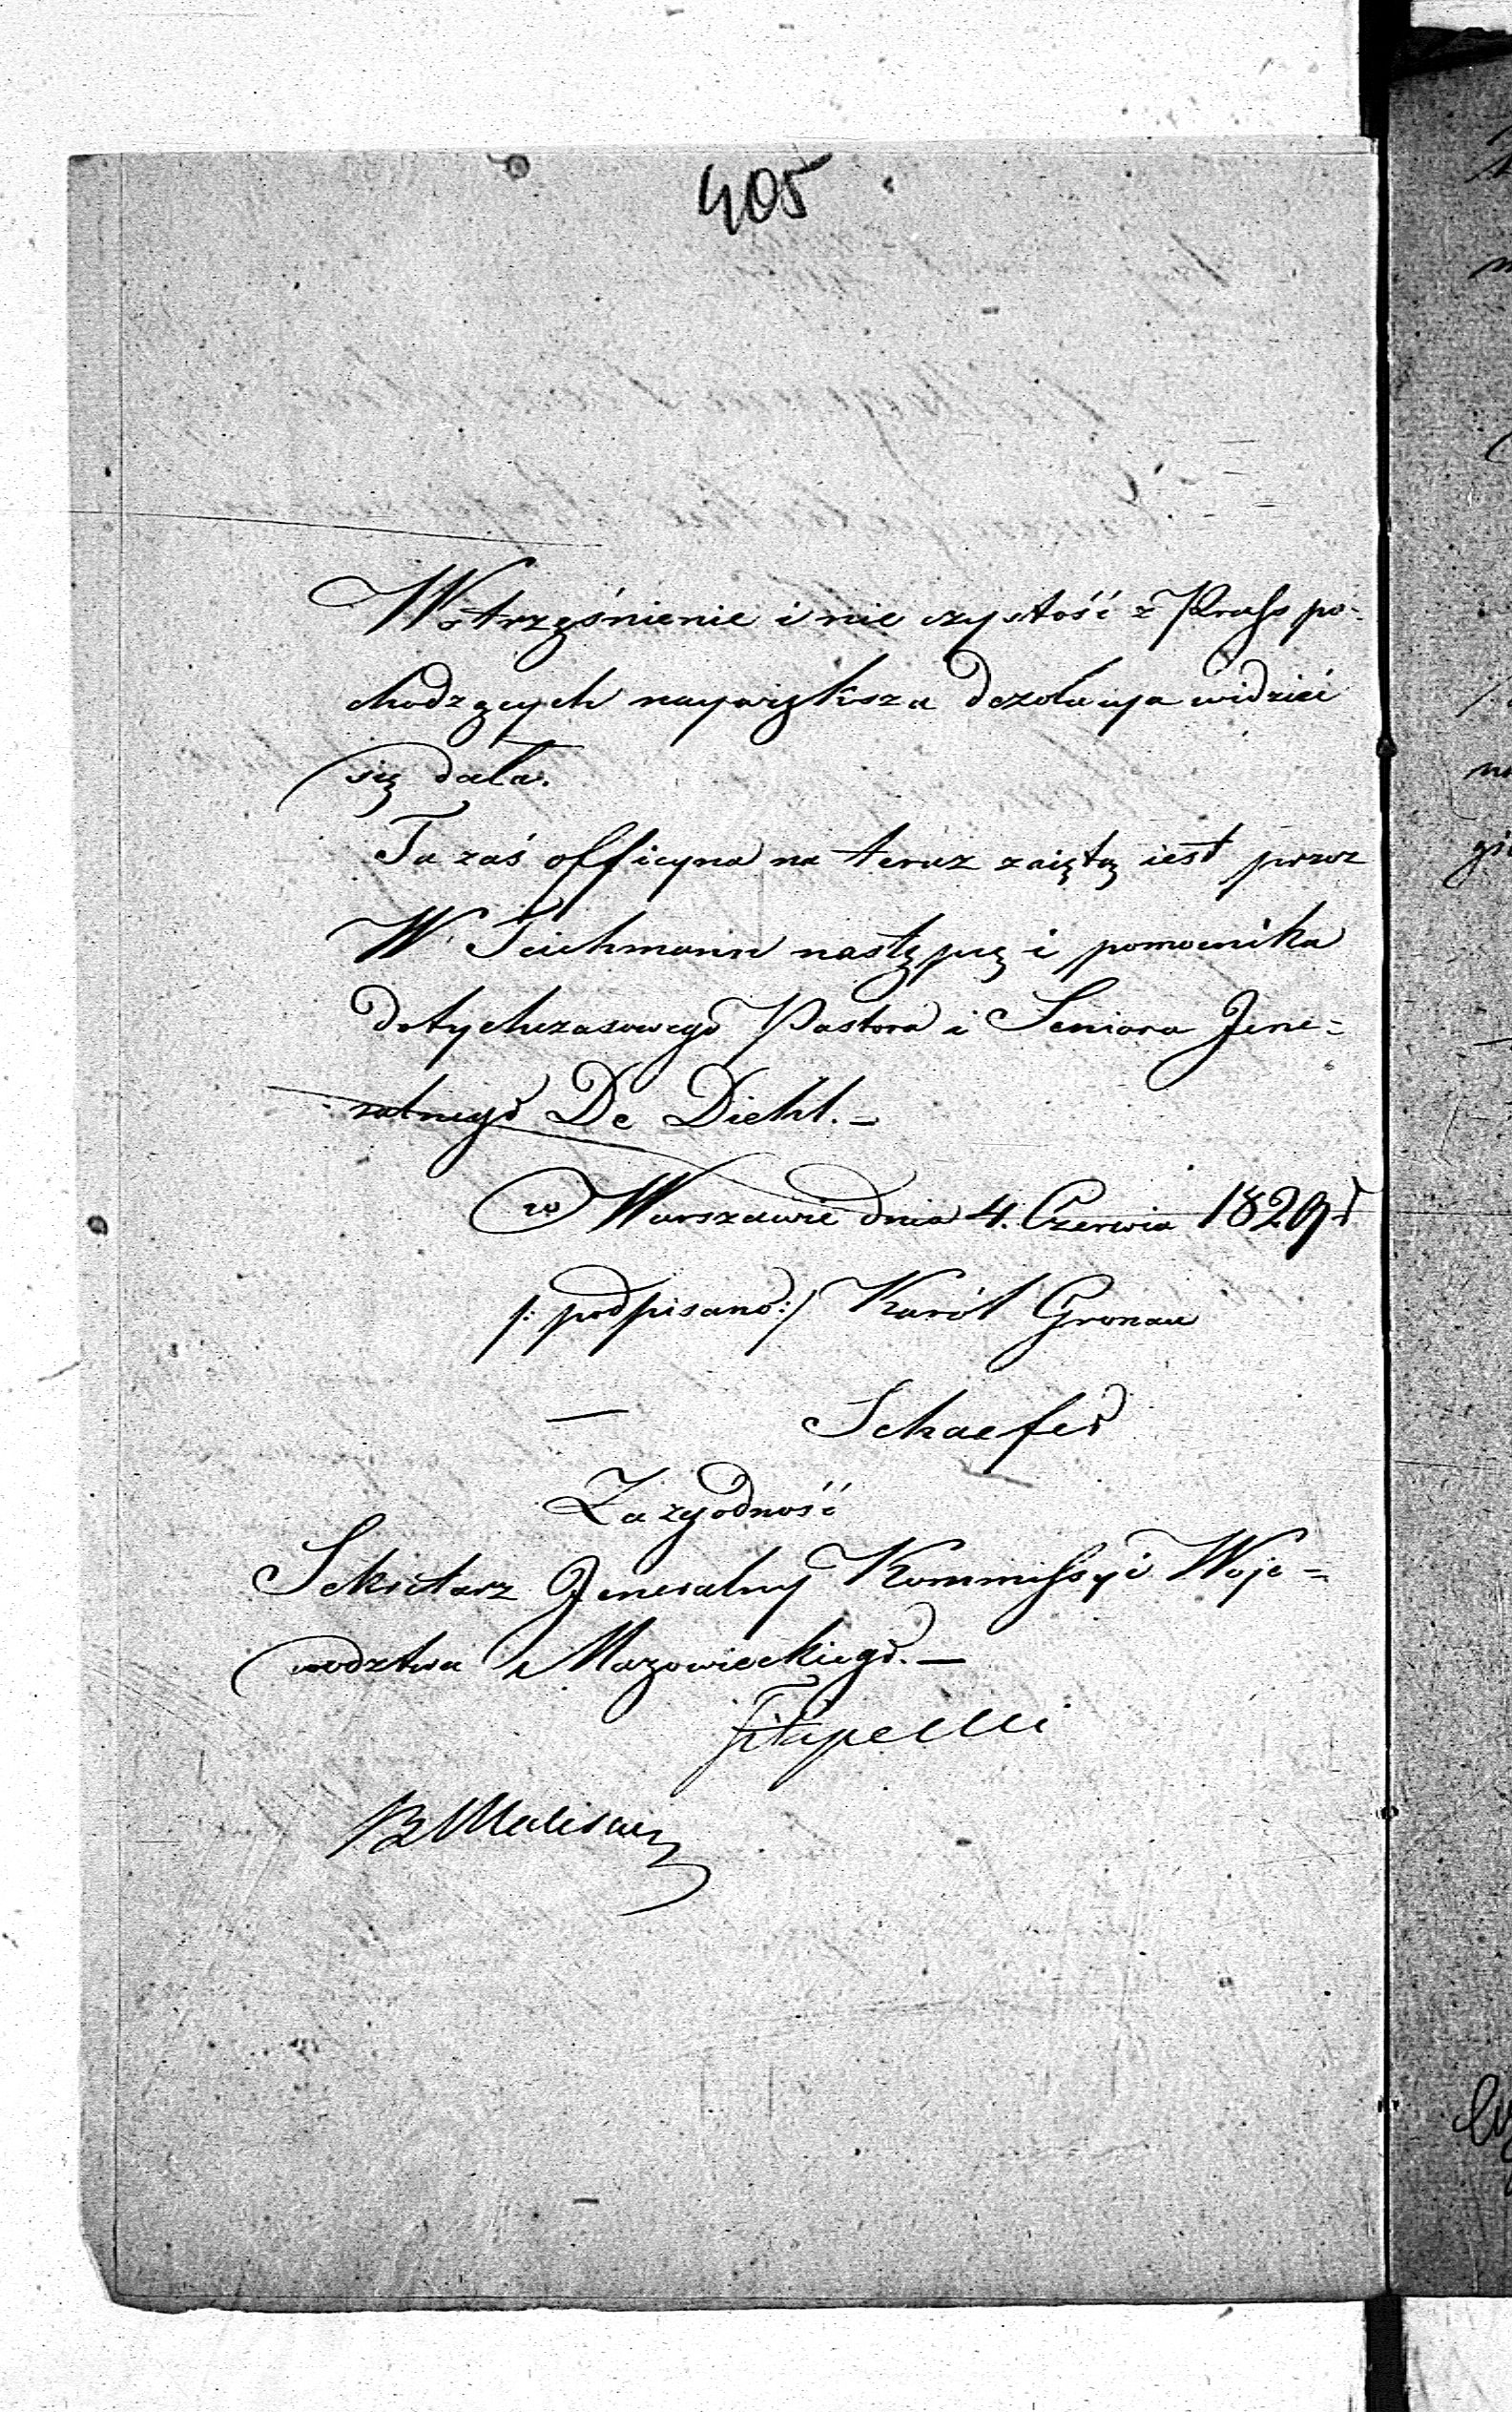 405
Wstrzęśnienie i nie czystość z Prass po-
chodzących naywiększa dezolacya widzieć
się dała.
Ta zaś officyna na teraz zaiętą iest przez
W Teichmann następcę i pomocnika
dotychczasowego Pastora i Seniora Jene=
ralnego De Diehl.-
w Warszawie dnia 4. Czerwca 1829 r
/: podpisano :/ Karól Gronau
— Schaefer
Za zgodność
Sekretarz Jeneralny Kommissyi Woje=
wodztwa Mazowieckiego.-
Filipecki